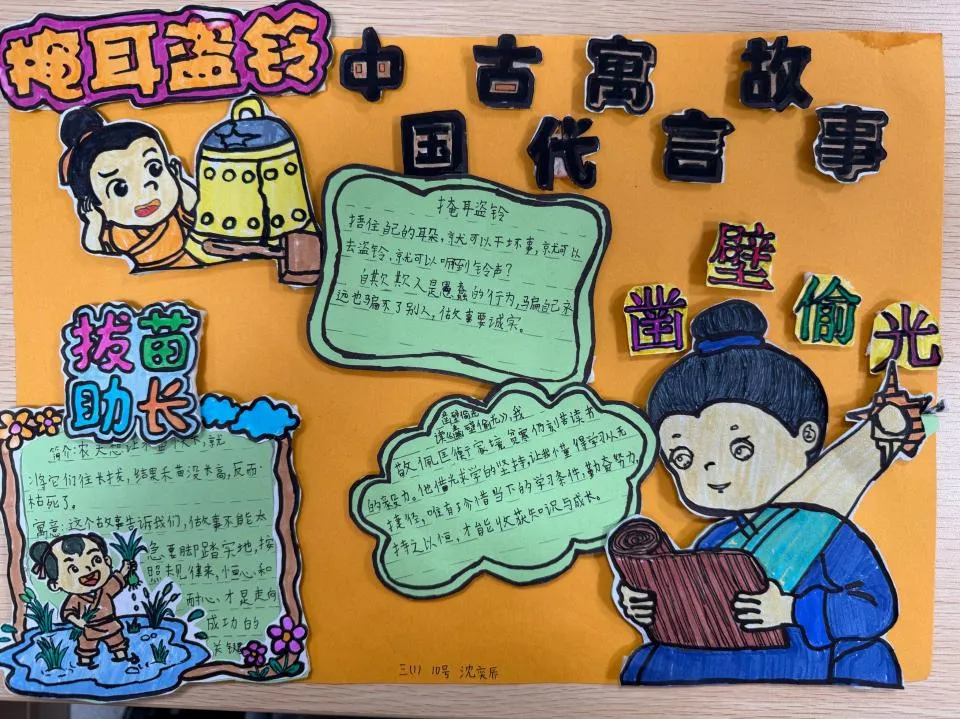 掩耳盗铃
中古寓故
国代言事
掩耳盗铃
捂住自己的耳朵,就可以干坏事,就可以
去盗铃,就可以听到铃声?
自欺欺人是愚蠢的行为,骗自己永
远也骗不了别人,做事要诚实。
凿壁偷光
拔苗
助长
简介:农夫想让禾苗,就
将它们往长拔,结果禾苗没长高,反而
枯死了。
寓意:这个故事告诉我们,做事不能太
急要脚踏实地,按
照规律来,恒心和
耐心才是走向
成功的
关键
凿壁偷光
读《凿壁偷光》,我
敬佩匡衡家境贫寒仍刻苦读书
的毅力。他借光求学的坚持,让我懂得学习从无
捷径,唯有珍惜当下的学习条件,勤奋努力,
持之以恒,才能收获知识与成长。
三(1) 10号 沈奕辰